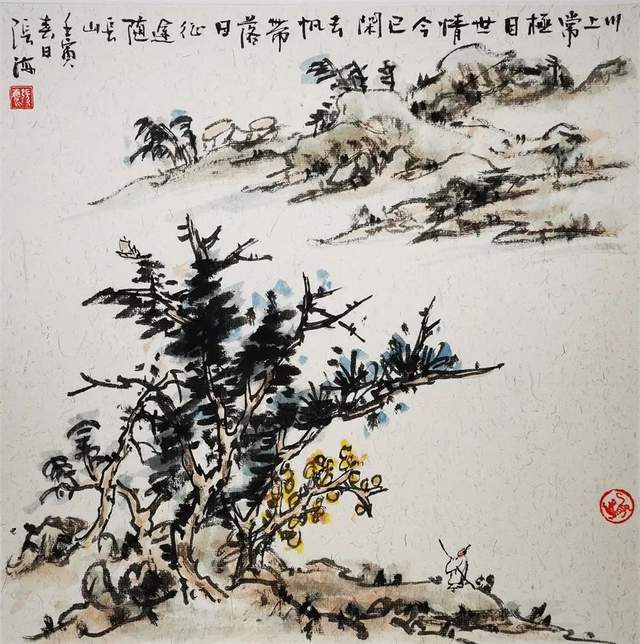 川上常極目世情今已閑去帆帶落日征途隨長山
壬寅
春日
張海